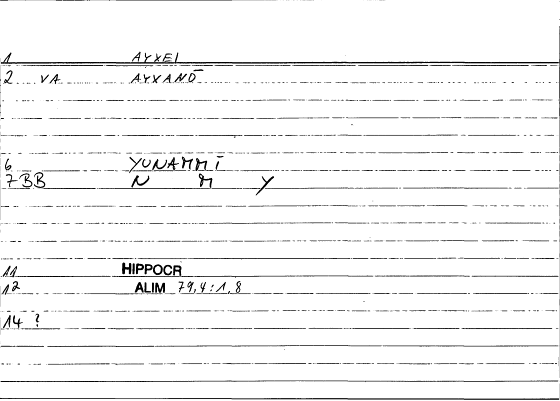 1 AYXEI
2 VA AYXANŌ
6 YUNAMMI
7BB N M Y
11 HIPPOCR
12 ALIM 79,4:1,8
14 ?